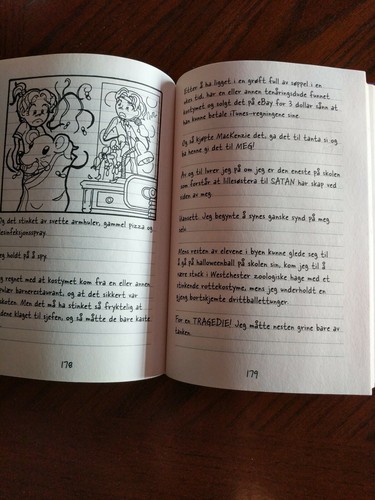 Og det stinket av svette armhuler, gammel pizza og
desinfeksjonsspray.
Jeg holdt på å spy.
Jeg regnet med at kostymet kom fra en eller annen
barnerestaurant, og at det sikkert var
Men det må ha stinket så fryktelig at
klaget til sjefen, og så måtte de bare kaste
178
Etter å ha ligget i en grøft full av søppel i en
ukes tid, har en eller annen tenåringsdude funnet
kostymet og solgt det på eBay for 3 dollar sånn at
han kunne betale iTunes-regningene sine.
Og så kjøpte MacKenzie det, ga det til tanta si og
ba henne gi det til MEG!
Av og til lurer jeg på om jeg er den eneste på skolen
som forstår at lillesøstera til SATAN har skap ved
siden av meg.
Uansett. Jeg begynte å synes ganske synd på meg
selv.
Mens resten av elevene i byen kunne glede seg til
å gå på halloweenball på skolen sin, kom jeg til å
være stuck i Westchester zoologiske hage med et
stinkende rottekostyme, mens jeg underholdt en
gjeng bortskjemte drittballettunger.
For en TRAGEDIE! Jeg måtte nesten grine bare av
tanken.
179